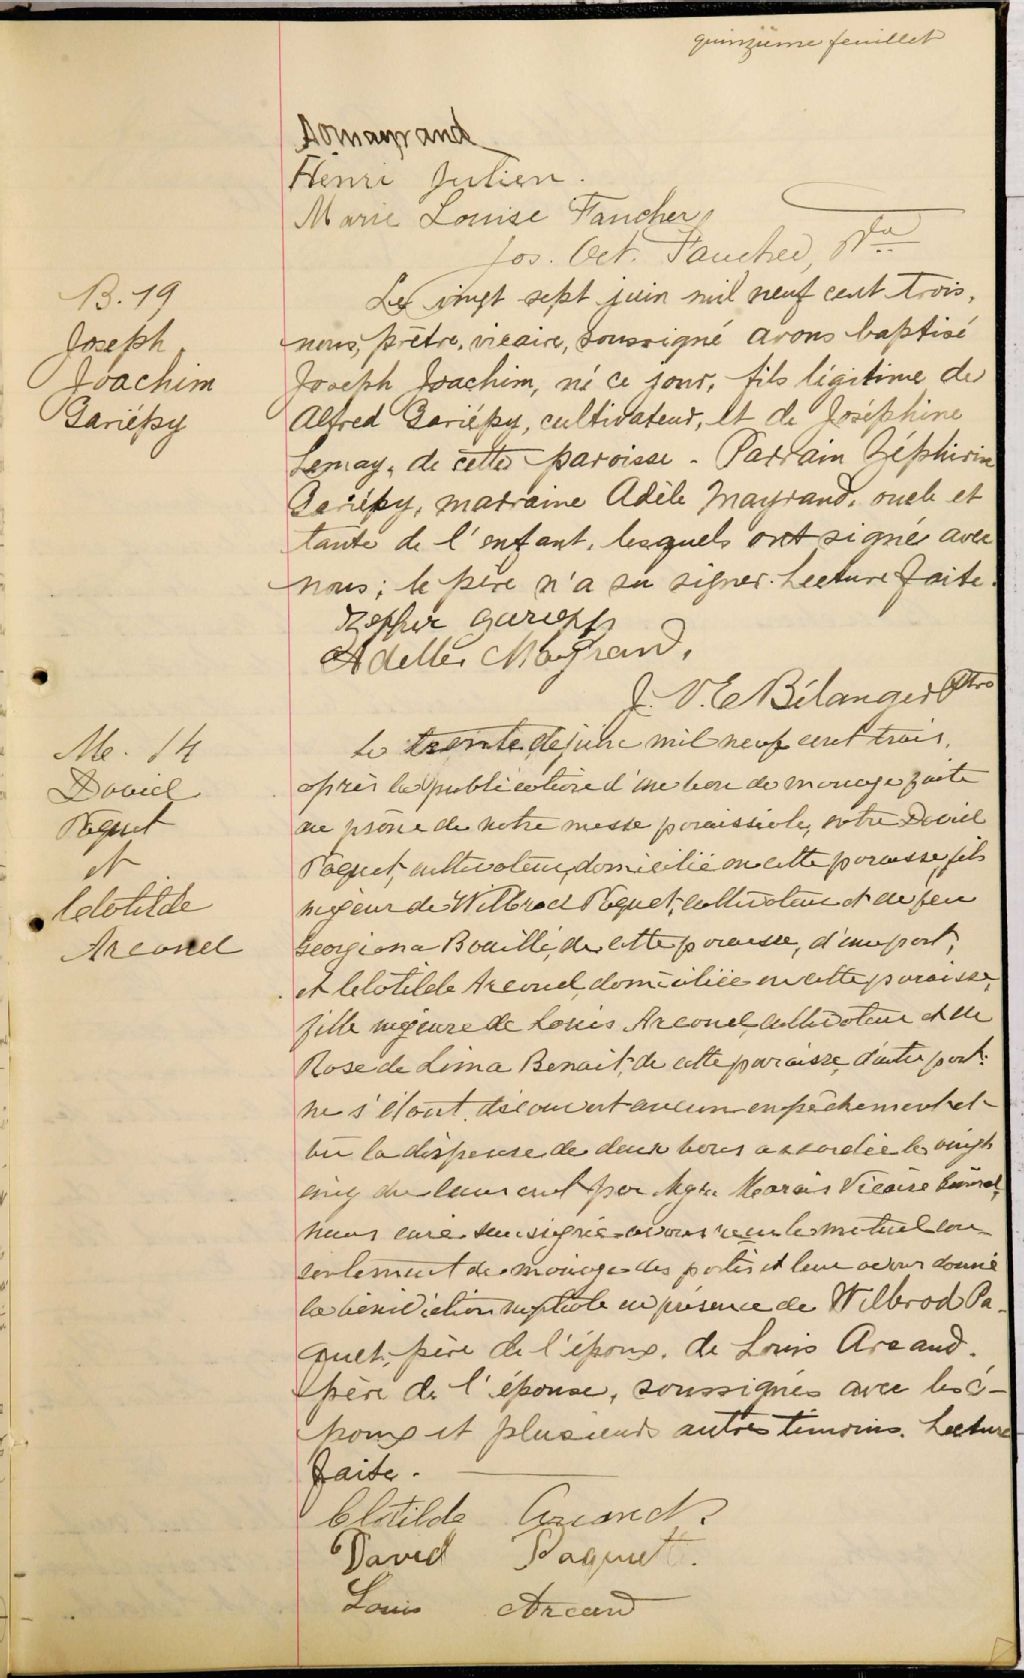 quinzième feuillet
Henri Julien.
Marie Louise Faucher
Jos. Oct. Faucher, Ptre
B. 19
Joseph
Joachim
Gariépy
Le vingt sept juin mil neuf cent trois,
nous, prêtre, vicaire, soussigné avons baptisé
Joseph Joachim, né ce jour, fils légitime de
Alfred Gariépy, cultivateur, et de Joséphine
Lemay, de cette paroisse - Parrain Zéphirin
Gariépy, marraine Adèle Mayrand, oncle et
tante de l'enfant, lesquels ont signé avec
nous; le père n'a su signer. Lecture faite.
Zephir Gariepy
Adelle Mayrand,
J. V. E Bélanger Ptre
M. 14
David
Paquet
et
Clotilde
Arcand
Le trente de juin mil neuf cent trois,
après la publication d'un ban de mariage faite
au prône de notre messe paroissiale, entre David
Paquet, cultivateur, domicilié en cette paroisse, fils
majeur de Wilbrod Paquet, cultivateur et de feu
Georgiana Bouillé, de cette paroisse, d'une part;
et Clotilde Arcand, domiciliée en cette paroisse,
fille majeure de Louis Arcand, cultivateur et de
Rose de Lima Benoit, de cette paroisse, d'autre part:
ne s'étant découvert aucun empêchement et
vu la dispense de deux bans accordée le vingt
cinq du courant par Mgr. Marois Vicaire Général,
nous curé soussigné avons reçu le mutuel con-
sentement de mariage des parties et leur avons donné
la bénédiction nuptiale en présence de Wilbrod Pa-
quet, père de l'époux, de Louis Arcand,
père de l'épouse, soussignés avec les é-
poux et plusieurs autres témoins. Lecture
faite.
Clotilde Arcand
David Paquette.
Louis Arcand